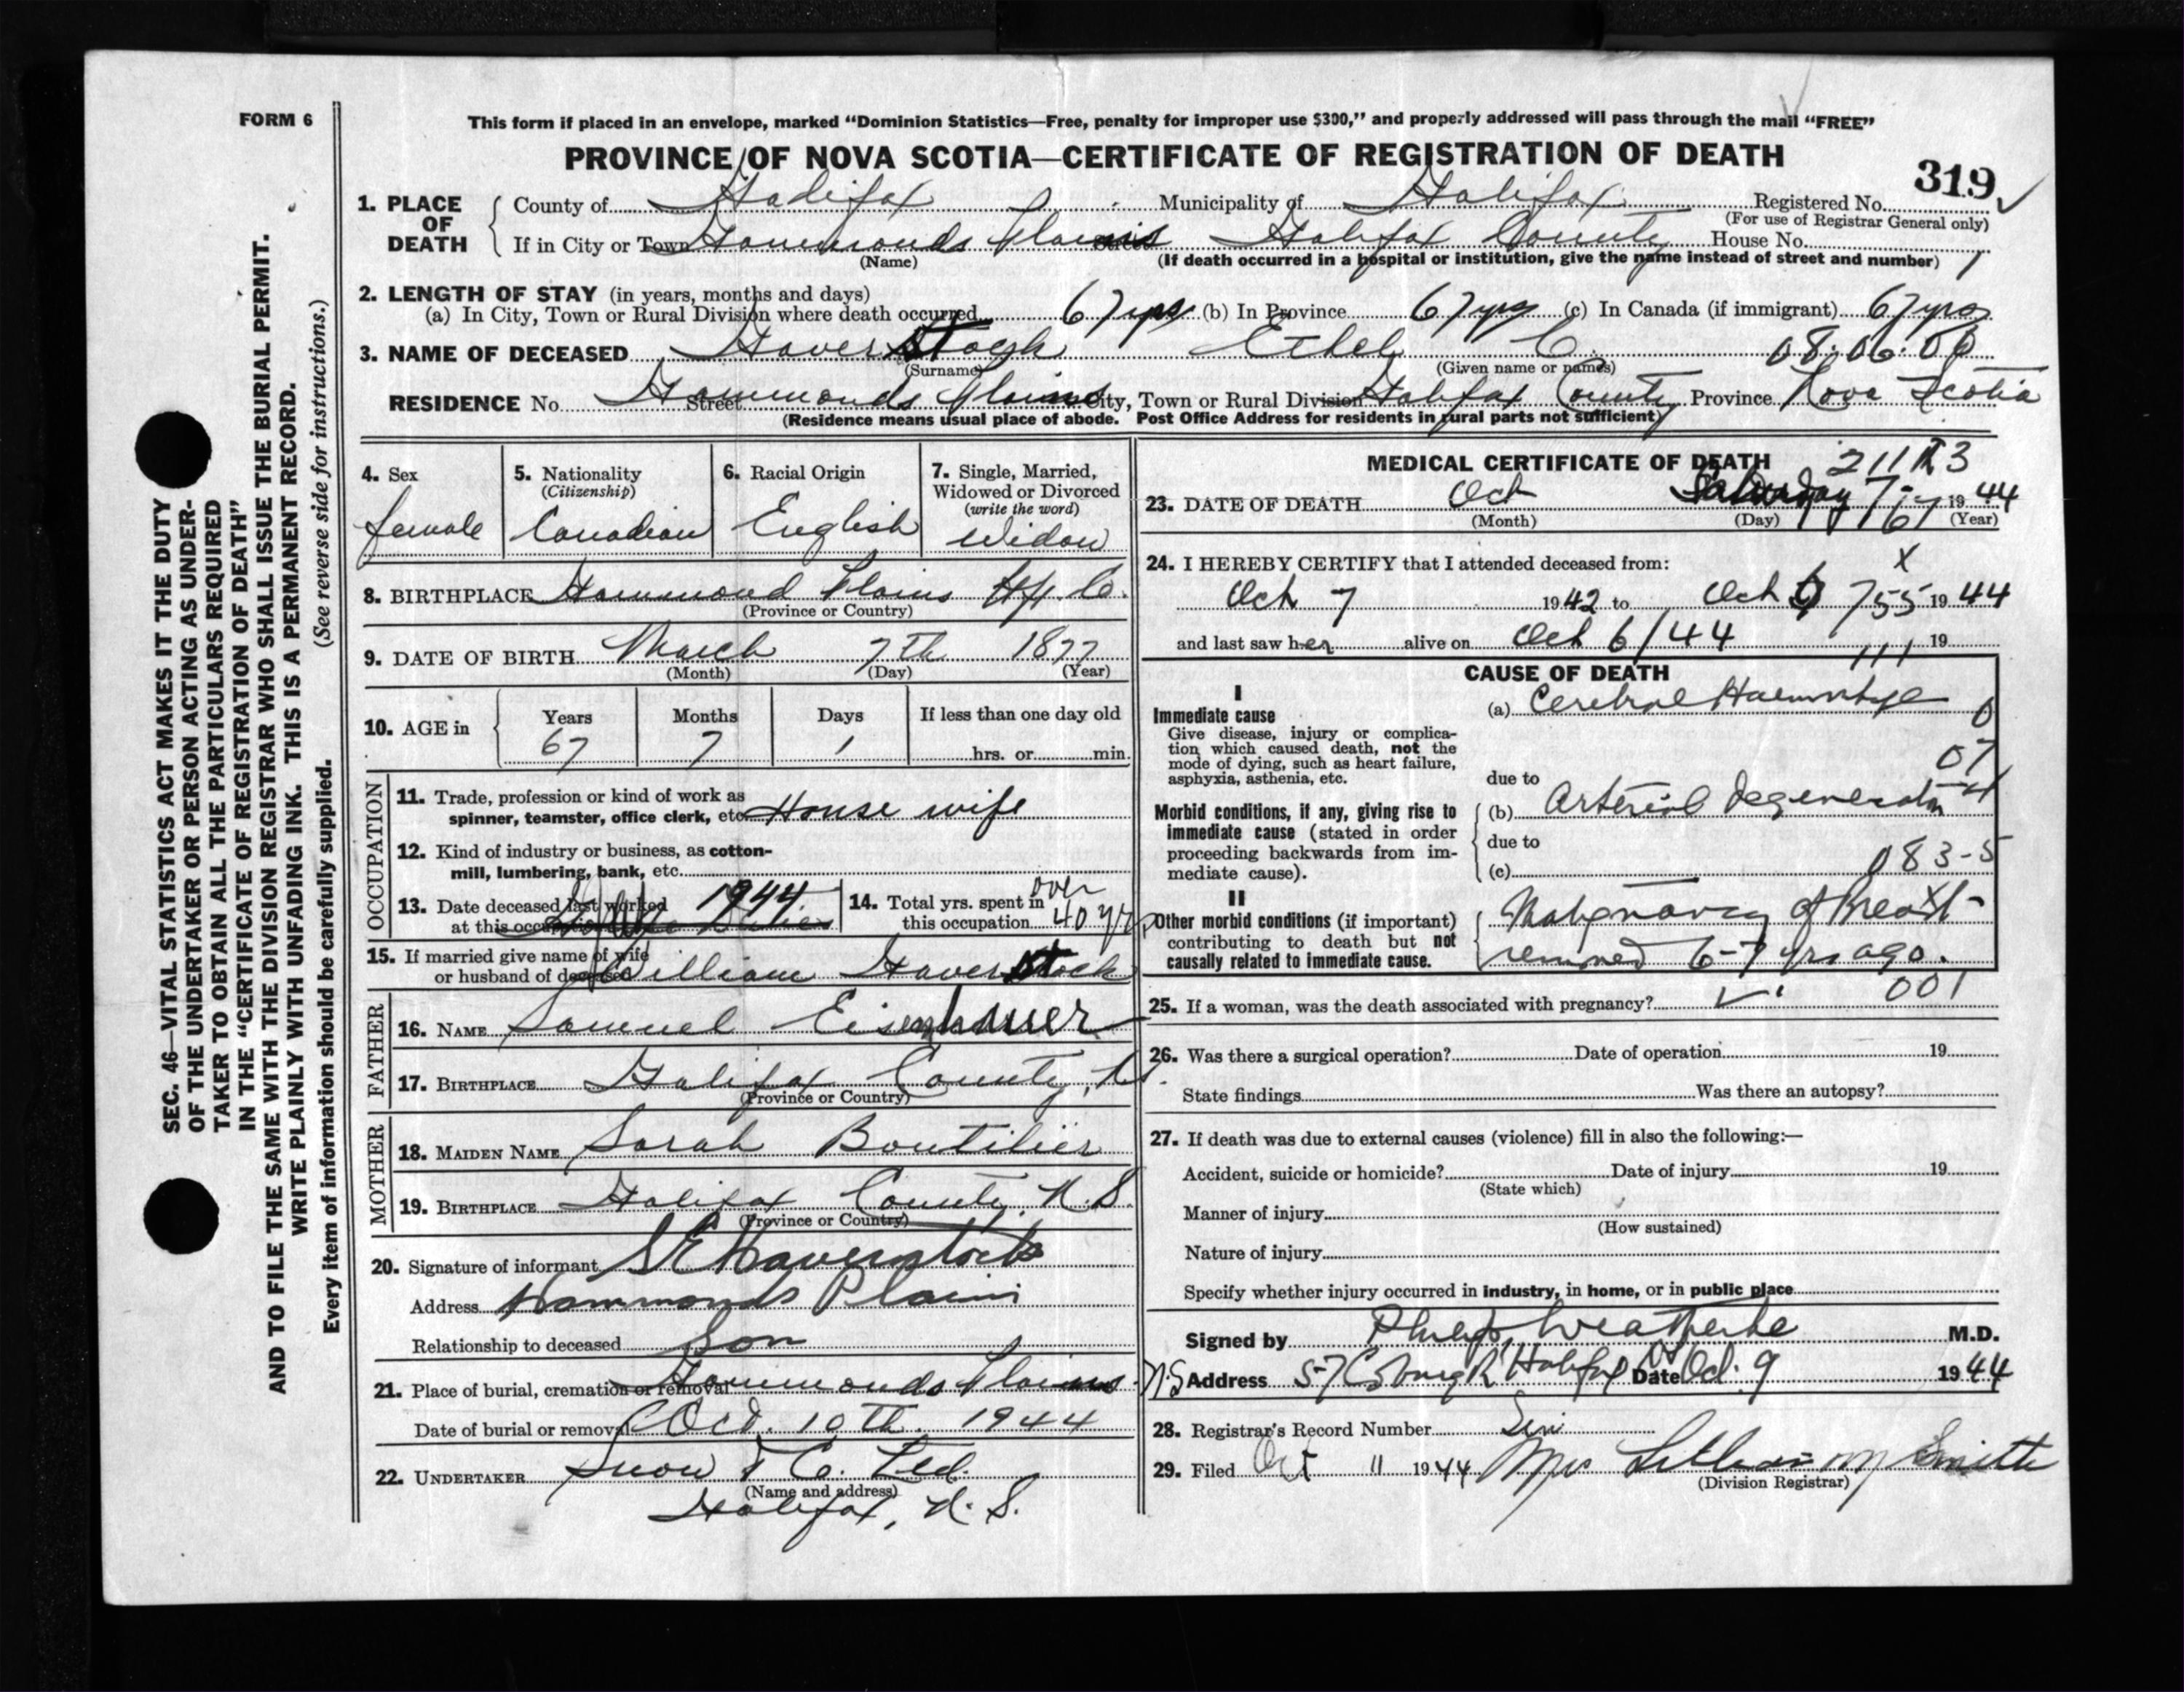 FORM 6
This form if placed in an envelope, marked "Dominion Statistics—Free, penalty for improper use $300," and properly addressed will pass through the mail "FREE"
PROVINCE OF NOVA SCOTIA—CERTIFICATE OF REGISTRATION OF DEATH
319
1. PLACE OF DEATH
County of Halifax Municipality of Halifax Registered No.
(For use of Registrar General only)
If in City or Town Hammonds Plains Halifax County House No.
(Name) (If death occurred in a hospital or institution, give the name instead of street and number)
2. LENGTH OF STAY (in years, months and days)
(a) In City, Town or Rural Division where death occurred 67 yrs (b) In Province 67 yrs (c) In Canada (if immigrant) 67 yrs
3. NAME OF DECEASED Haverstock Ethel C. 08.06.00
(Surname) (Given name or names)
RESIDENCE No. Street Hammonds Plains City, Town or Rural Division Halifax County Province Nova Scotia
(Residence means usual place of abode. Post Office Address for residents in rural parts not sufficient)
4. Sex
female
5. Nationality
(Citizenship)
Canadian
6. Racial Origin
English
7. Single, Married, Widowed or Divorced
(write the word)
widow
8. BIRTHPLACE Hammond Plains Hfx. Co.
(Province or Country)
9. DATE OF BIRTH March 7th 1877
(Month) (Day) (Year)
10. AGE in
Years Months Days If less than one day old
67 7 1 hrs. or min.
OCCUPATION
11. Trade, profession or kind of work as
spinner, teamster, office clerk, etc. House wife
12. Kind of industry or business, as cotton-
mill, lumbering, bank, etc.
13. Date deceased last worked 1944
at this occupation
14. Total yrs. spent in over
this occupation 40 yrs
15. If married give name of wife
or husband of deceased William Haverstock
FATHER
16. NAME Samuel Eisenhauer
17. BIRTHPLACE Halifax County, N.S.
(Province or Country)
MOTHER
18. MAIDEN NAME Sarah Boutilier
19. BIRTHPLACE Halifax County, N.S.
(Province or Country)
20. Signature of informant S E Haverstock
Address Hammonds Plains
Relationship to deceased Son
21. Place of burial, cremation or removal Hammonds Plains
Date of burial or removal Oct. 10th. 1944
22. UNDERTAKER Snow & Co. Ltd.
(Name and address)
Halifax, N.S.
MEDICAL CERTIFICATE OF DEATH
23. DATE OF DEATH Oct Saturday 7 1944
(Month) (Day) (Year)
24. I HEREBY CERTIFY that I attended deceased from:
Oct 7 1942 to Oct 7 1944
755
and last saw her alive on Oct 6/44 19
CAUSE OF DEATH
I
Immediate cause
Give disease, injury or complica-
tion which caused death, not the
mode of dying, such as heart failure,
asphyxia, asthenia, etc.
(a) Cerebral Haemorrhage
07
due to
Morbid conditions, if any, giving rise to
immediate cause (stated in order
proceeding backwards from im-
mediate cause).
(b) Arterial Degeneration
due to
(c) 083-5
II
Other morbid conditions (if important)
contributing to death but not
causally related to immediate cause.
Malignancy of Breast -
removed 6-7 yrs ago.
001
25. If a woman, was the death associated with pregnancy?
26. Was there a surgical operation? Date of operation 19
State findings Was there an autopsy?
27. If death was due to external causes (violence) fill in also the following:—
Accident, suicide or homicide? Date of injury 19
(State which)
Manner of injury
(How sustained)
Nature of injury
Specify whether injury occurred in industry, in home, or in public place
Signed by Philip Weatherbe M.D.
Address Halifax N.S. Date Oct. 9 1944
28. Registrar's Record Number
29. Filed Oct 11 1944 Mrs Lillian M Smith
(Division Registrar)
SEC. 46—VITAL STATISTICS ACT MAKES IT THE DUTY
OF THE UNDERTAKER OR PERSON ACTING AS UNDER-
TAKER TO OBTAIN ALL THE PARTICULARS REQUIRED
IN THE "CERTIFICATE OF REGISTRATION OF DEATH"
AND TO FILE THE SAME WITH THE DIVISION REGISTRAR WHO SHALL ISSUE THE BURIAL PERMIT.
WRITE PLAINLY WITH UNFADING INK. THIS IS A PERMANENT RECORD.
Every item of information should be carefully supplied. (See reverse side for instructions.)